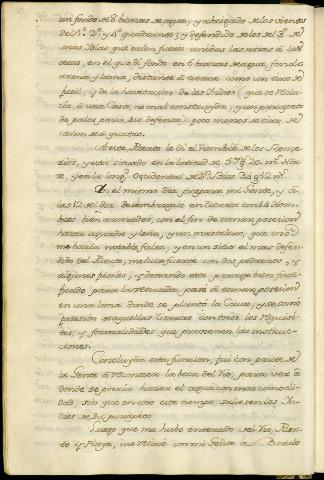 un fondo de 6 brazas de agua, y abrigado de los vientos
del 1º 2º y 4º quadrantes; y defendido de los del 3º de
unas Yslas que salen fuera unidas las unas à las
otras, en el que di fondo en 6 brazas de agua, fondo
arena y lama, distante à tierra como un tiro de
fusil, y de la havitacion de los Yndios (que se redu-
cía, à una Casa, no mal construyda, y un parapeto
de palos para su defensa) poco menos de tiro de
cañon de à quatro.
A este Puerto le di el nombre de los Remedi-
os, y está situado en la latitud de 57 g 20 m. Nor-
te, y en la longd. Occidental de Sn. Blas
En el mismo dia prepare mi Gente, y à
las 12 del dia desembarque en tierra con 16 Hom-
bres bien armados, con el fin de tomar posesion
hazer aguada y leña, y un mastelero, que uno
me hazia notable falta, y en un sitio el mas defen-
dido del Puerto, me hize fuerte con dos pedreros, y
algunos fusiles, y dexando este parage bien forti-
ficado para la retirada, pasé à tomar posesion
en una loma donde se plantó la Cruz, y se tomó
posesion de aquellas tierras con todos los requisi-
tos, y formalidades que previenen las instruc-
ciones.
Concluyda esta funcion, fui con parte de
la Gente à reconozer la boca del Rio, para ver à
donde se podria hazer el agua con mas comodi-
dad, sin que en todo este tiempo saliesen los Yn-
dios de su parapeto
Luego que me hube enterado del Rio, Puer-
to y Playa, me retiré con mi Gente a Bordo